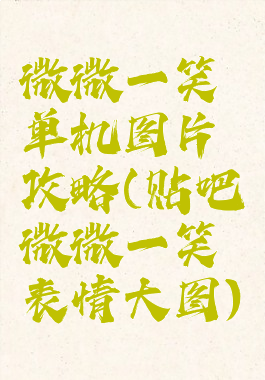 微微一笑
单机图片
攻略(贴吧
微微一笑
表情大图)